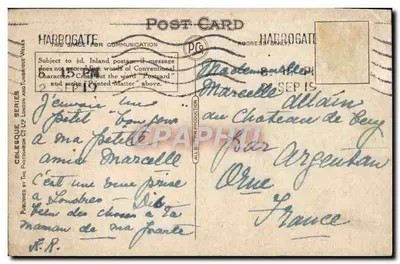 POST CARD
HARROGATE
HARROGATE
THIS SPACE FOR COMMUNICATION
ADDRESS ONLY
Subject to ½d. Inland postage if message
does not exceed five words of Conventional
Character. Cross out the word "Postcard
and write "Printed Matter" above.
8 15 PM
SEP 19
J'envoie une
petit bonjour
à ma petite
amie Marcelle
C'est une vue prise
à Londres - Dis
bien des choses à ta
maman de ma part
Mademoiselle
Marcelle Allain
au Chateau de
par Argentan
Orne
France
CELESQUE SERIES
PUBLISHED BY THE PHOTOCHROM Co Ltd LONDON AND TUNBRIDGE WELLS
CPARAMA